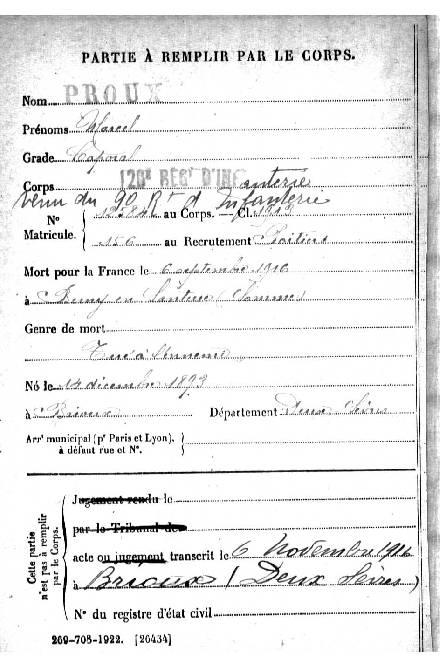 PARTIE À REMPLIR PAR LE CORPS.
Nom PROUX
Prénoms Marcel
Grade Caporal
Corps 120e RÉGt D'INFanterie
Venu du 9e Rt d'Infanterie
N° Matricule. au Corps. — Cl. 1913
au Recrutement Poitiers
Mort pour la France le 6 septembre 1916
à en Santerre (Somme)
Genre de mort
Tué à l'ennemi
Né le 14 décembre 1893
à Brioux Département Deux Sèvres
Arrt municipal (pr Paris et Lyon),
à défaut rue et N°.
Cette partie n'est pas à remplir par le Corps.
Jugement rendu le
par le Tribunal de
acte ou jugement transcrit le 6 Novembre 1916
à Brioux (Deux Sèvres)
N° du registre d'état civil
269-708-1922. [26434]